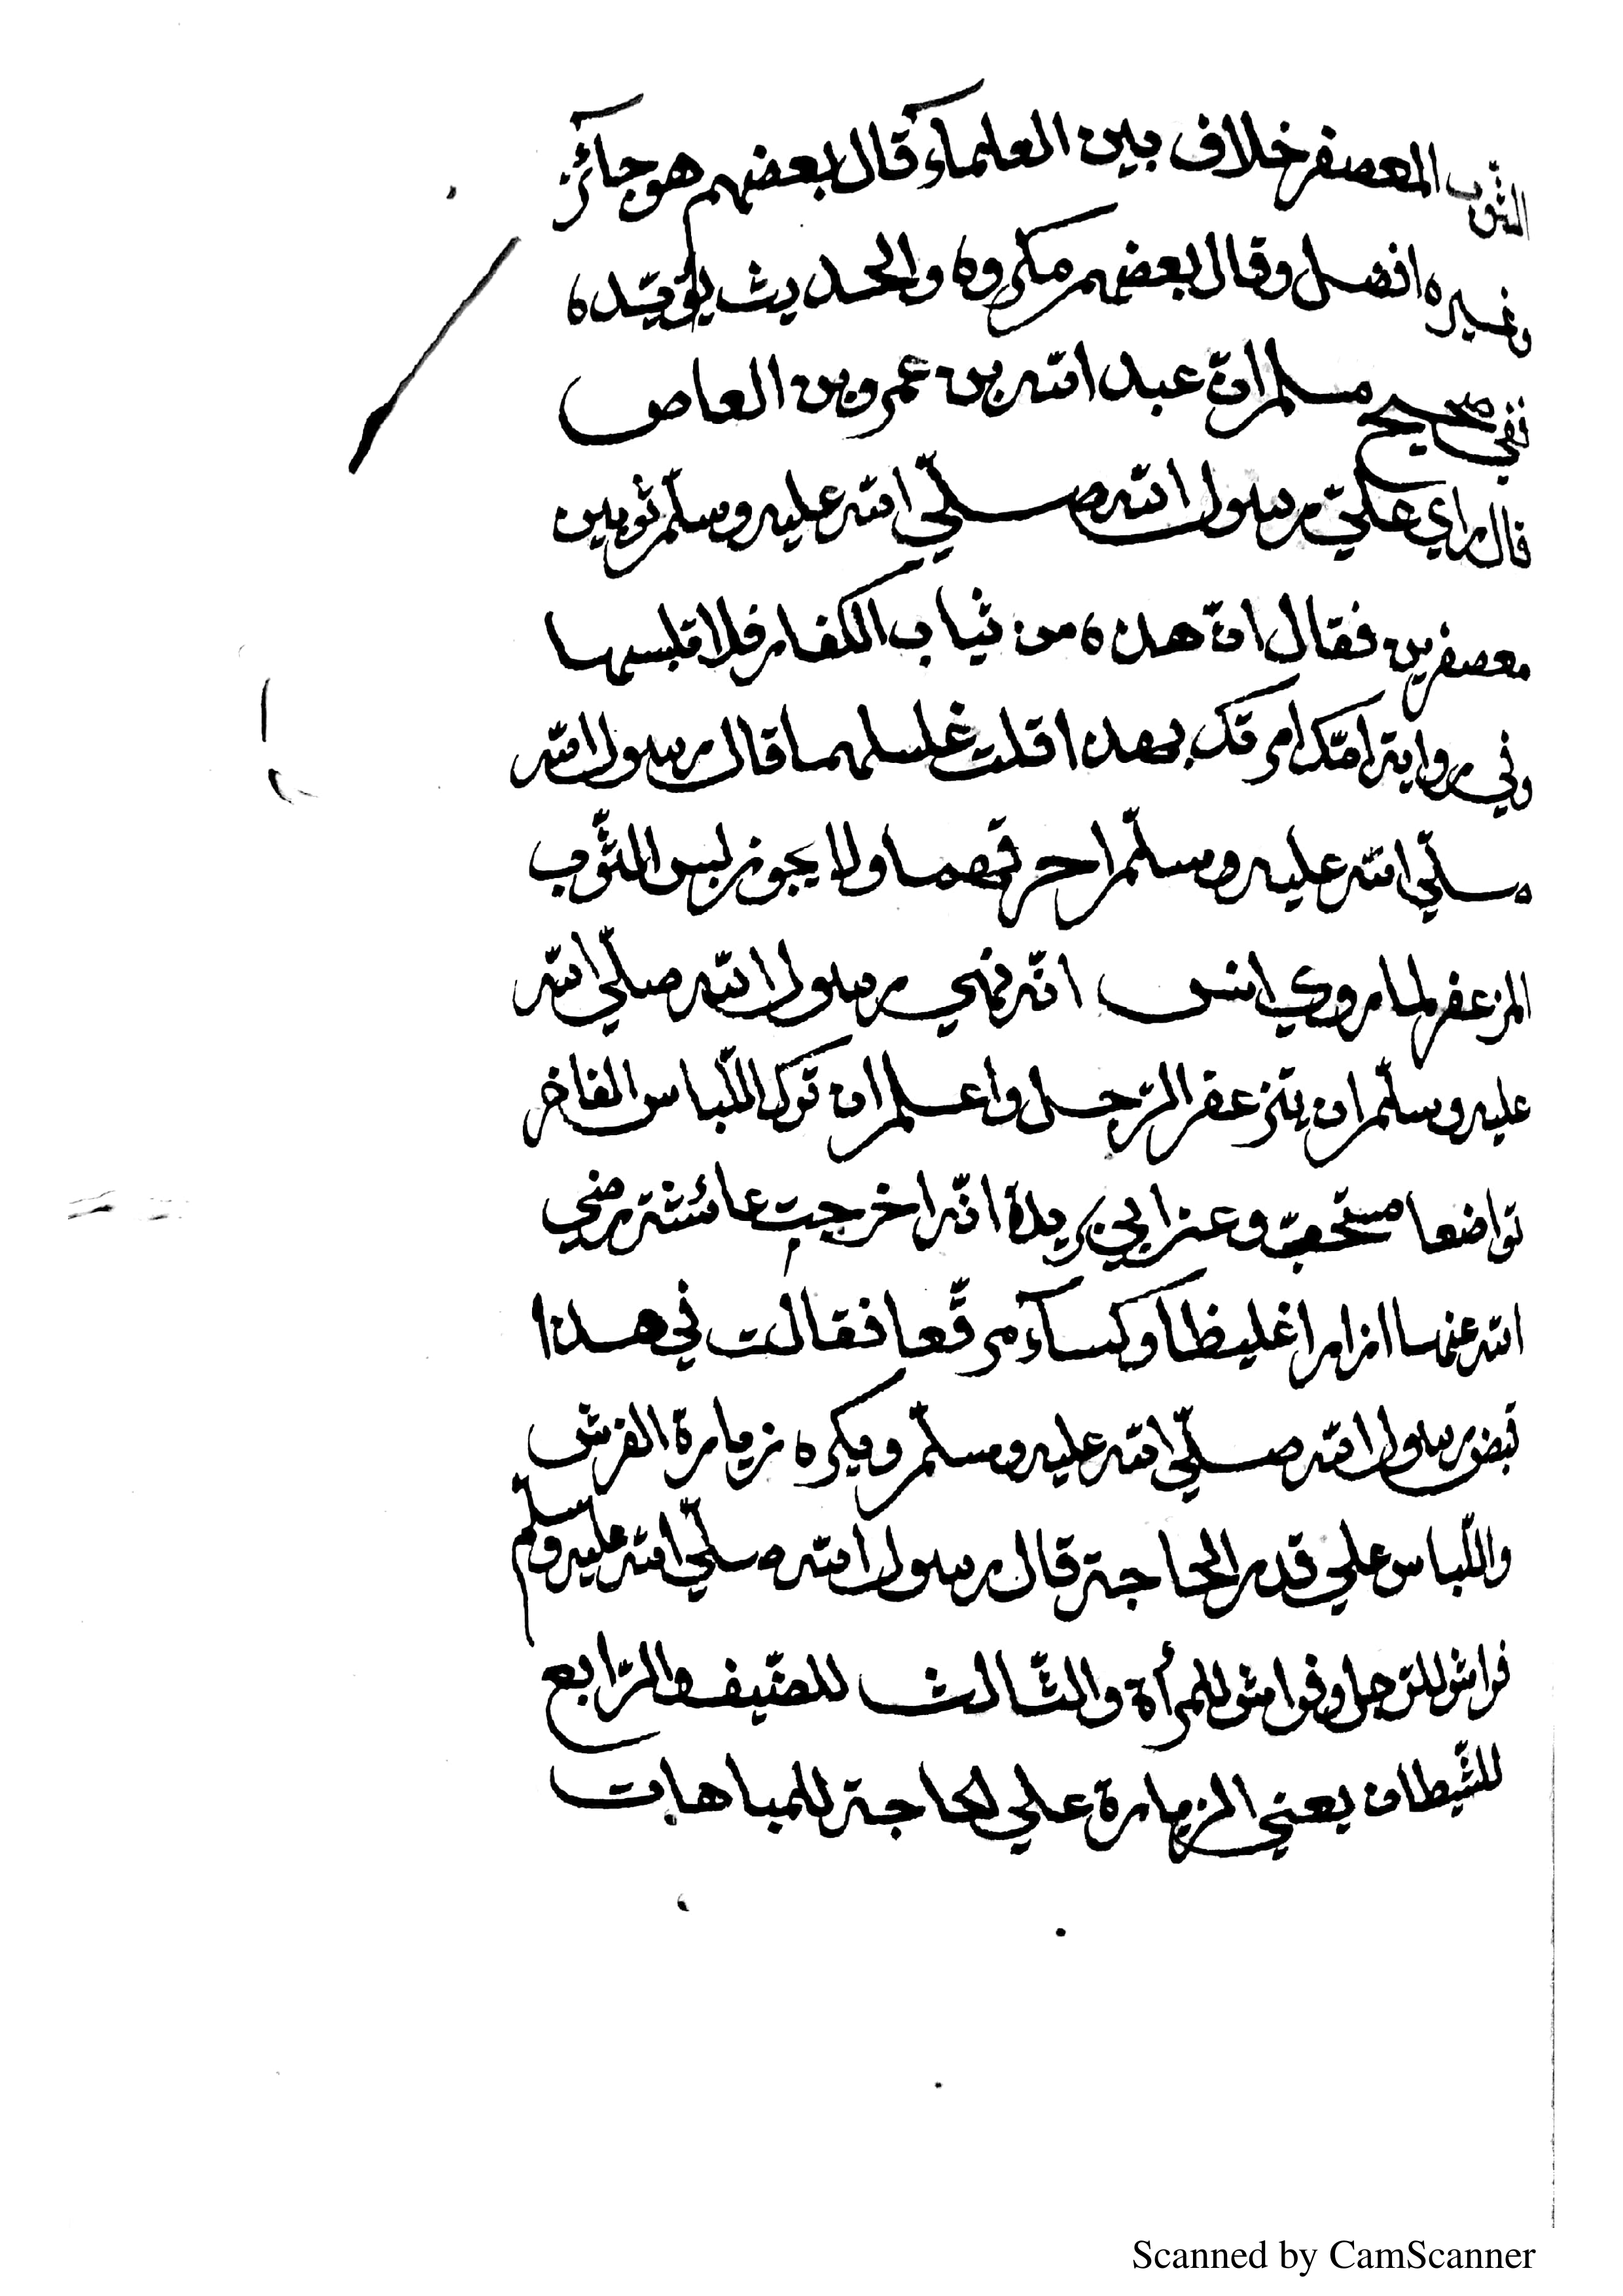 الثّوب المعصفر خلاف بين العلماء قال بعضهم هو جائز
وغيره افضل وقال بعضهم مكروه والحديث يؤيّده
ففي صحيح مسلم انّ عبد الله بن عمرو بن العاص
قال راي عليّ رسول الله صلّي الله عليه وسلّم ثوبين
معصفرين فقال انّ هذه من ثياب الكفار فلا تلبسها
وفي رواية امّك امرتك بهذا قلت غسلهما قال رسول الله
صلّي الله عليه وسلّم احرقهما ولا يجوز لبس الثّوب
المزعفر لما روي انس انّه نهي رسول الله صلّي الله
عليه وسلّم ان يتزعفر الرّجل واعلم ان ترك اللّباس الفاخر
تواضعا مستحبّ وعن ابي بريدة انّه اخرجت عائشة رضي
الله عنها ازارا غليظا وكساء مرقّعا فقالت في هذا
قبض رسول الله صلّي الله عليه وسلّم ويكره زيارة الفرش
واللّباس علي قدر الحاجة قال رسول الله صلّي الله عليه وسلم
فراش للرّجل وفراش للمرأة والثّالث للضّيف والرّابع
للشّيطان يعني الزيارة علي لحاجة للمباهات
Scanned by CamScanner